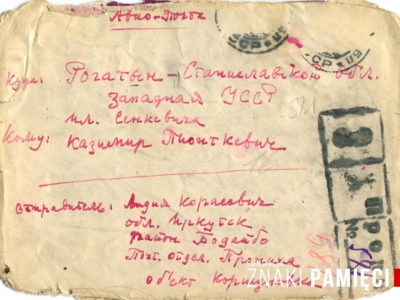 Авио-Почта
Куда: Рогатын – Станиславской обл.
Западная УССР
ил. Сенкевича
Кому: Казимир Пионткевич
отправитель: Лидия Корасович
обл. Иркутск
район Бодайбо
Почт. отдел.
об'ект
ZNAKI PAMIĘCI